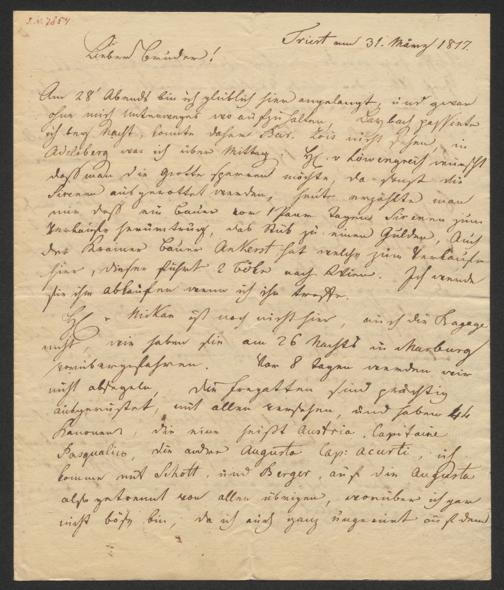 I.N. 7854
Triest am 31. März 1817.
Lieber Bruder!
Am 28 Abends bin ich glücklich hier angelangt, und zwar
ohne mich unterweges wo aufzuhalten, Laybach passierte
ich bey Nacht, konnte daher Bar. Zois nicht sehen, in
Adelsberg war ich über Mittag. H. v Löwengreif wünscht
daß man die Grotte sperren möchte, da sonst die
Sirenen ausgerottet werden, heute erzählte man
mir daß ein Bauer vor paar Tagen Sirenen zum
Verkaufe herumtrug, das Stük zu einen Gulden, Auch
der Krainer Bauer Ankerst hat welche zum Verkaufe
hier, dieser führt 2 Böke nach Wien. Ich werde
sie ihm ablaufen wenn ich ihn treffe.
H. v Mikan ist noch nicht hier, auch die Bagage
nicht, wir haben sie am 26 Nachts in Marburg
vorübergefahren. Vor 8 Tagen werden wir
nicht absegeln, die Fregatten sind prächtig
ausgerüstet mit allen versehen, und haben 44
Kanonen die eine heißt Austria, Capitaine
Pasqualigo, die andre Augusta Cap: Acurti, ich
komme mit Schott, und Berger, auf die Augusta
also getrennt von allen übrigen, worüber ich gar
nicht böse bin, da ich auch ganz ungenannt auf dem